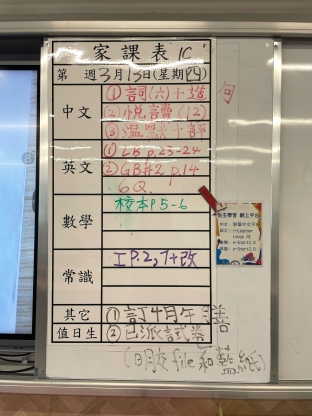 家課表 1C
第 週3月13日(星期四)
中文
①詞(六)+3造句
②悅讀(12)
③溫默+評
英文
①CB p.23-24
②GB#2 p.14
6Q.
數學
校本P5-6
常識
工P.2,7+改
其它
①訂4月午膳
值日生
②已派試卷
(明交file和藍紙)
自主學習 網上平台